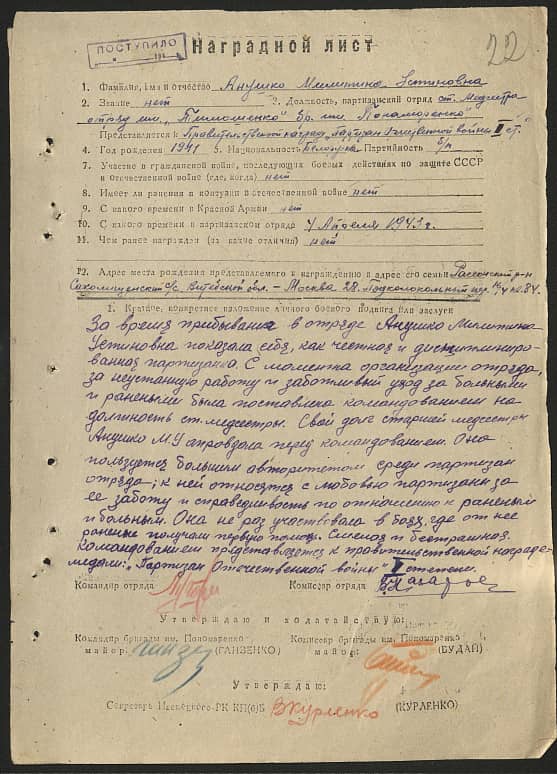 ПОСТУПИЛО
22
Наградной лист
1. Фамилия, имя и отчество Анушко Милитина Устиновна
2. Звание нет 3. Должность, партизанский отряд ст. Медсестра
отряд им. "Тимошенко" бр. им. Пономаренко"
Представляется к Правительственной награде "Партизан Отечественной войны II ст."
4. Год рождения 1921 5. Национальность Белоруска Партийность б/п
7. Участие в гражданской войне, последующих боевых действиях по защите СССР
и Отечественной войне (где, когда) нет
8. Имеет ли ранения и контузии в отечественной войне нет
9. С какого времени в Красной Армии нет
10. С какого времени в партизанском отряде 4 Апреля 1943 г.
11. Чем ранее награжден (за какие отличия) нет
12. Адрес места рождения представляемого к награждению и адрес его семьи Россонский р-н
с/с Витебской обл. - Москва 28. Подколокольный пер.
I. Краткое, конкретное изложение личного боевого подвига или заслуги
За время прибывания в отряде Анушко Милитина
Устиновна показала себя, как честная и дисциплиниро-
ванная партизанка. С момента организации отряда,
за неустанную работу и заботливый уход за больными
и ранеными была поставлена командованием на
должность ст. медсестры. Свой долг старшей медсестры
Анушко М.У оправдала перед командованием. Она
пользуется большим авторитетом среди партизан
отряда; к ней относятся с любовью партизаны за
ее заботу и справедливость по отношению к раненым
и больным. Она не раз участвовала в боях, где от нее
раненые получали первую помощь. Смелая и бесстрашная.
Командованием представляется к правительственной награде -
медали: "Партизан Отечественной войны" II степени.
Командир отряда Комиссар отряда
Утверждаю и ходатайствую:
Командир бригады им. Пономаренко Комиссар бригады им. Пономаренко
майор (ГАНЗЕНКО) майор (БУДАЙ)
Утверждаю:
Секретарь РК КП(б)Б ВКурленко (КУРЛЕНКО)